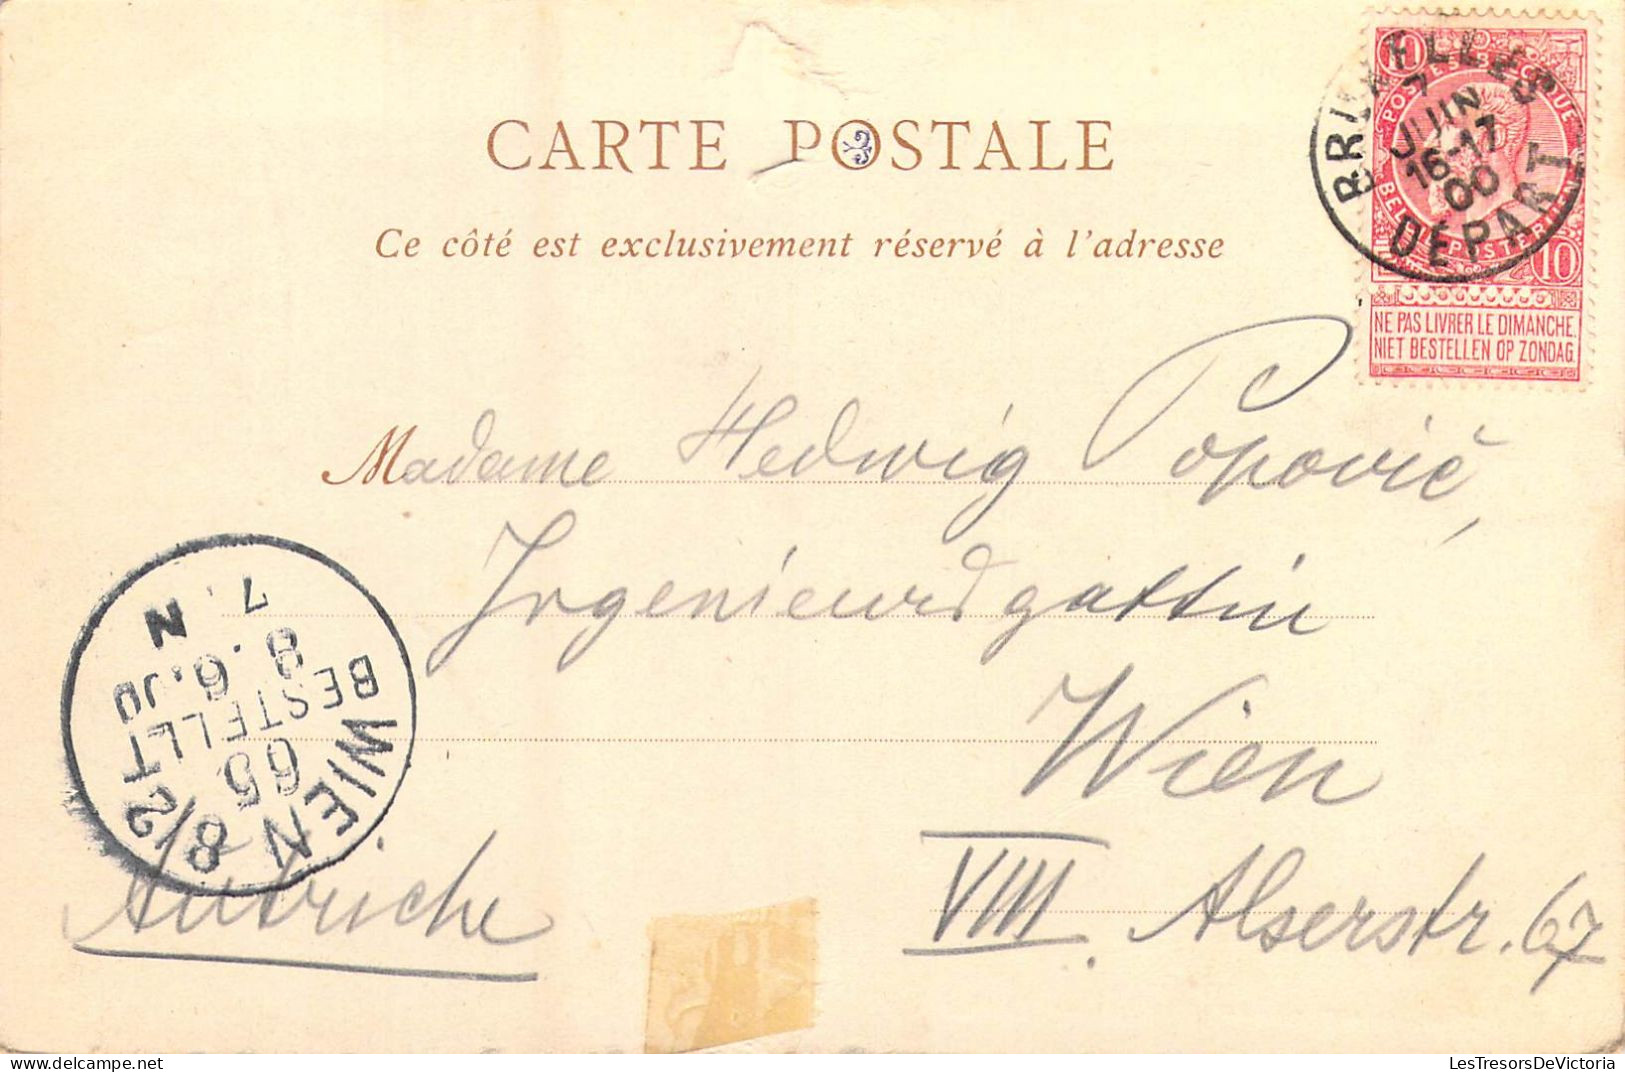 CARTE POSTALE
Ce côté est exclusivement réservé à l'adresse
BRUXELLES
7
JUIN
16-17
00
DÉPART
10
POSTES BELGIQUE
10
NE PAS LIVRER LE DIMANCHE.
NIET BESTELLEN OP ZONDAG.
Madame Hedwig Popovič,
Ingenieursgattin
Wien
VIII. Alserstr. 67
Autriche
WIEN 8/2
65
BESTELLT
LesTresorsDeVictoria